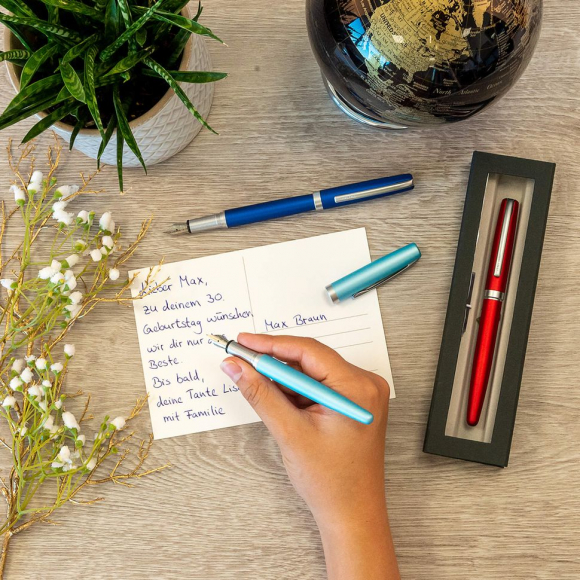 Lieber Max,
zu deinem 30.
Geburtstag wünschen
wir dir nur
Beste.
Bis bald,
deine Tante
mit Familie
Max Braun